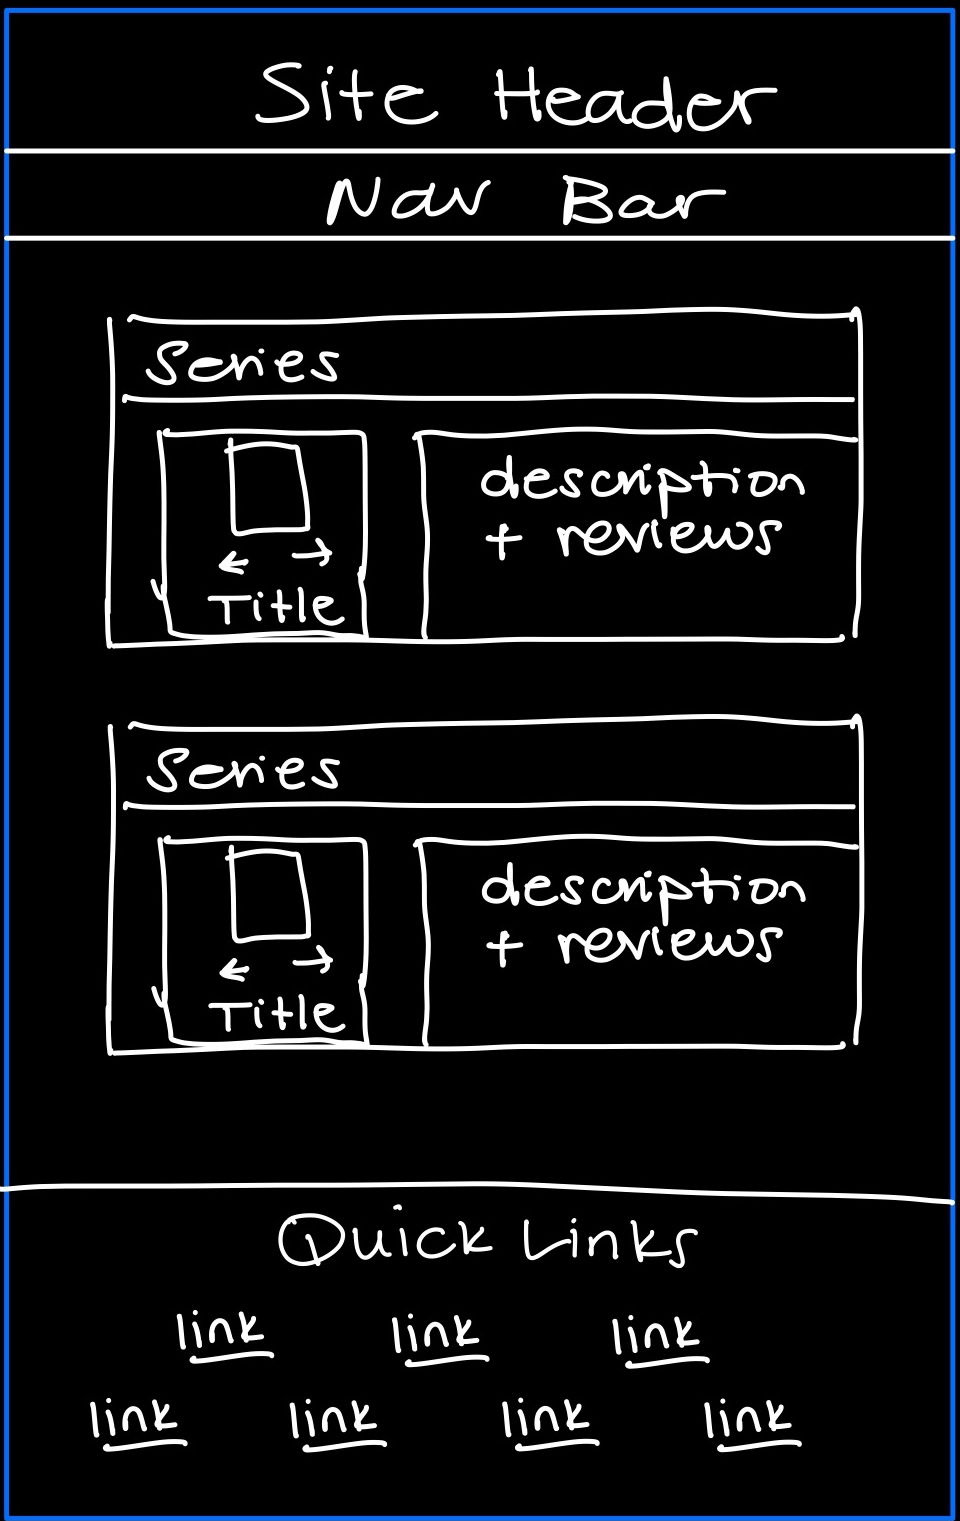 Site Header
Nav Bar
Series
description
+ reviews
Title
Series
description
+ reviews
Title
Quick Links
link link link
link link link link